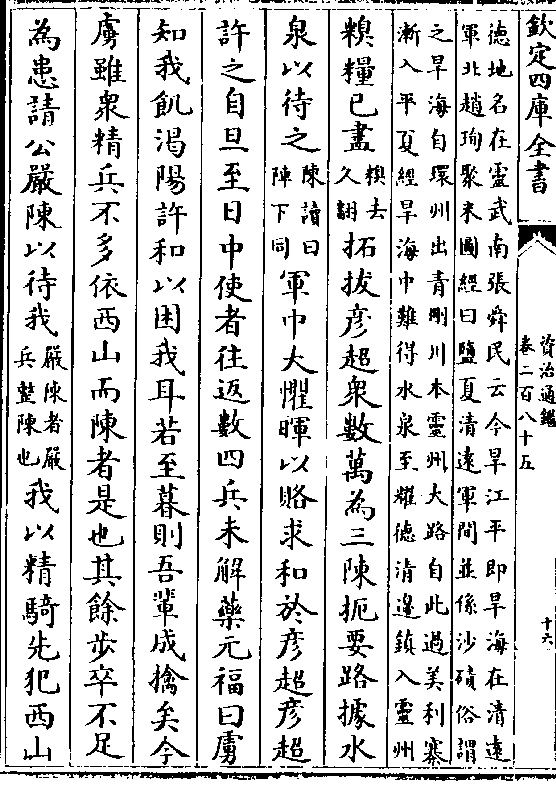 欽定四庫全書
資治通鑑
卷二百八十五
十六
德地名在靈武南張舜民云今旱江平即旱海在清遠
軍北趙珣聚米圖經曰鹽夏清遠軍間並係沙磧俗謂
之旱海自環州出青剛川本靈州大路自此過美利寨
漸入平夏經旱海中難得水泉至耀德清邊鎮入靈州
糗糧已盡
糗去
久翻
拓拔彦超衆數萬為三陳扼要路據水
泉以待之
陳讀曰
陣下同
軍中大懼暉以賂求和於彦超彦超
許之自旦至日中使者往返數四兵未解藥元福曰虜
知我飢渴陽許和以困我耳若至暮則吾輩成擒矣今
虜雖衆精兵不多依西山而陳者是也其餘步卒不足
為患請公嚴陳以待我
嚴陳者嚴
兵整陳也
我以精騎先犯西山